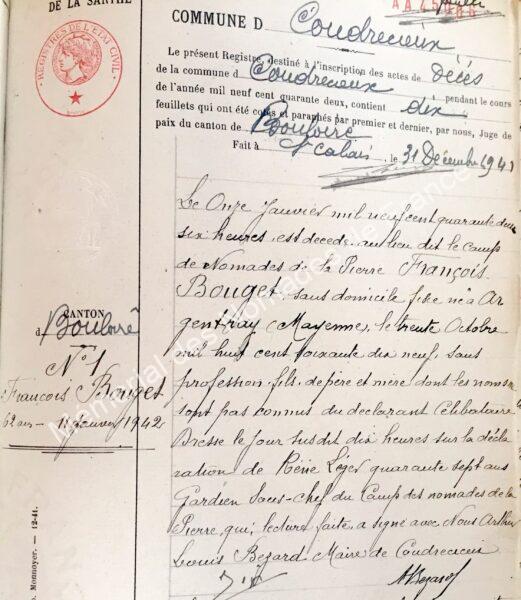 DE LA SARTHE
COMMUNE D Coudrecieux
AA45
REGISTRES DE L'ETAT CIVIL
Le présent Registre, destiné à l'inscription des actes de décès
de la commune d Coudrecieux pendant le cours
de l'année mil neuf cent quarante deux, contient dix
feuillets qui ont été cotés et paraphés par premier et dernier, par nous, Juge de
paix du canton de Bouloire
Fait à St Calais, le 31 Décembre 1941
CANTON
d Bouloire
N° 1
François Bouget
62 ans - 11 janvier 1942
Le Onze Janvier mil neuf cent quarante deux
six heures, est décédé au lieu dit le camp
de Nomades de la Pierre François
Bouget, sans domicile fixe né à Ar
gentray (Mayenne), le trente Octobre
mil huit cent soixante dix neuf, sans
profession, fils, de père et mère dont les noms
sont pas connus du déclarant Célibataire
Dressé le jour susdit dix heures sur la décla
ration de Réné Léger quarante sept ans
Gardien Sous-chef du Camp des nomades de la
Pierre, qui, lecture faite, a signé avec Nous Arthur
Louis Bezard Maire de Coudrecieux
ABezard
Monnoyer. - 12-41.
Mémorial des Nomades de France